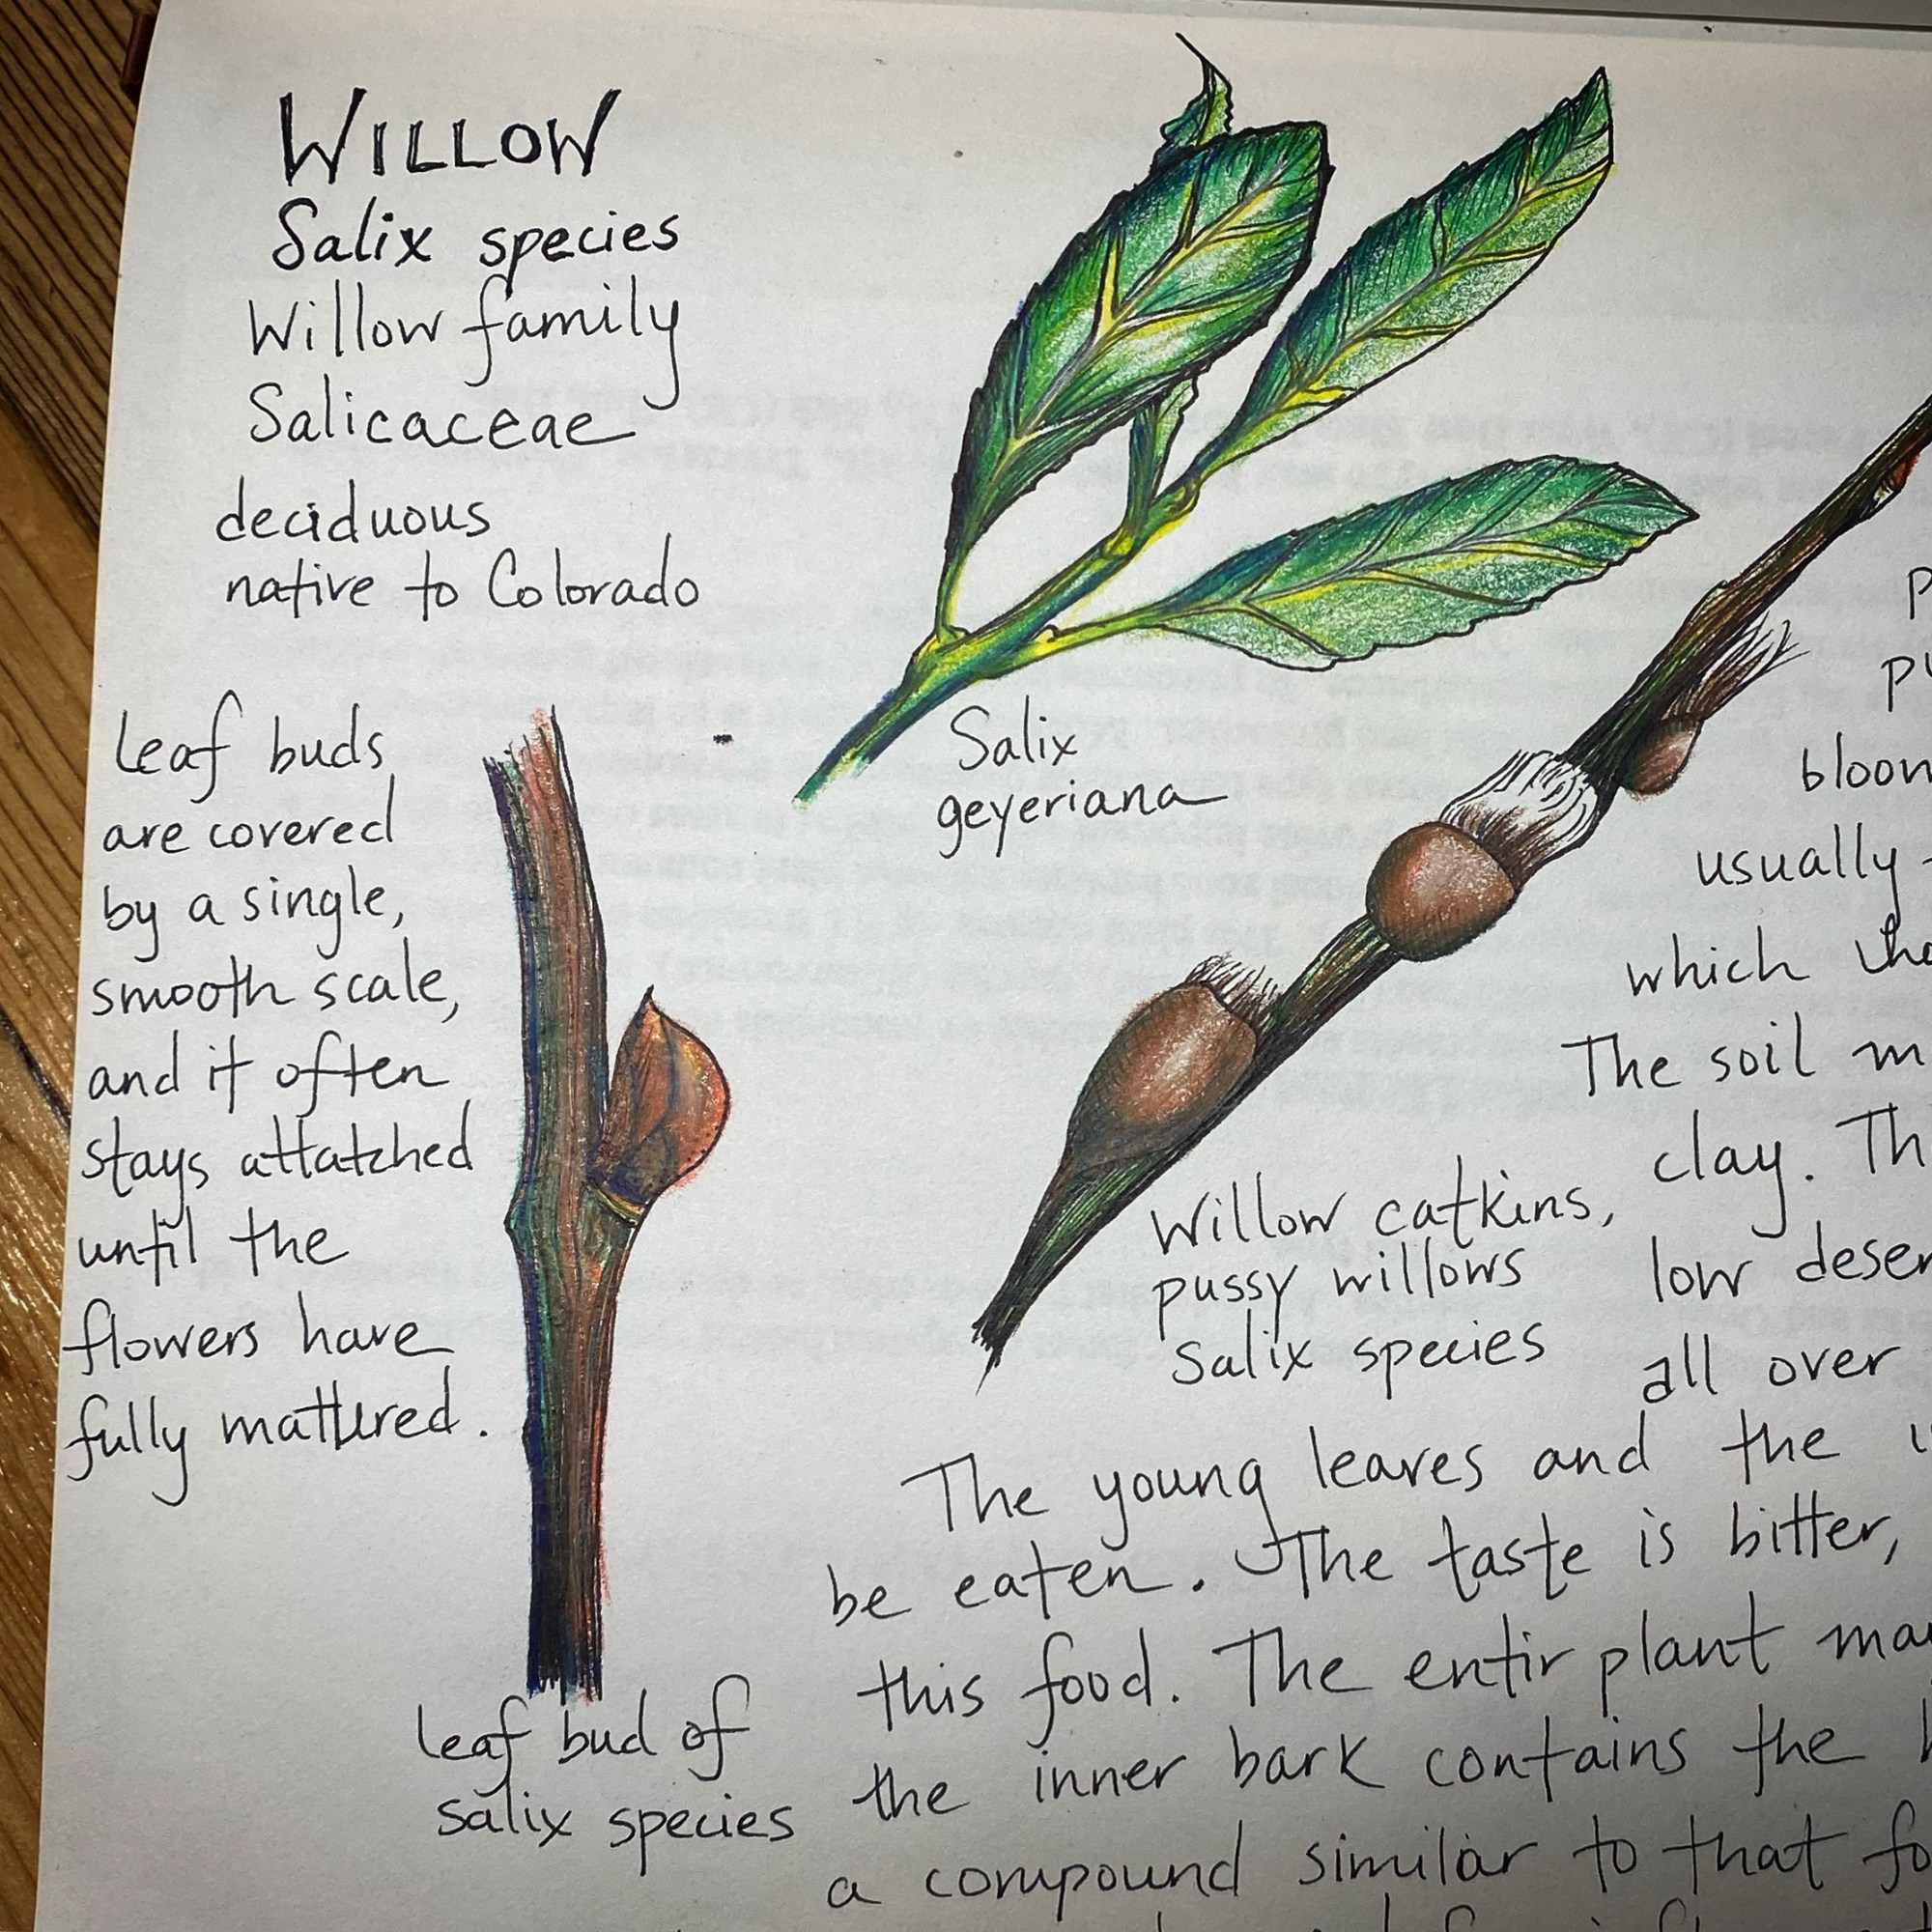 WILLOW
Salix species
Willow family
Salicaceae
deciduous
native to Colorado
Leaf buds
are covered
by a single,
smooth scale,
and it often
stays attatched
until the
flowers have
fully mattured.
leaf bud of
salix species
Salix
geyeriana
Willow catkins,
pussy willows
Salix species
bloom
usually
which
The soil
clay. Th
low deser
all over
The young leaves and the
be eaten. The taste is bitter,
this food. The entir plant
the inner bark contains the
a compound similar to that fo